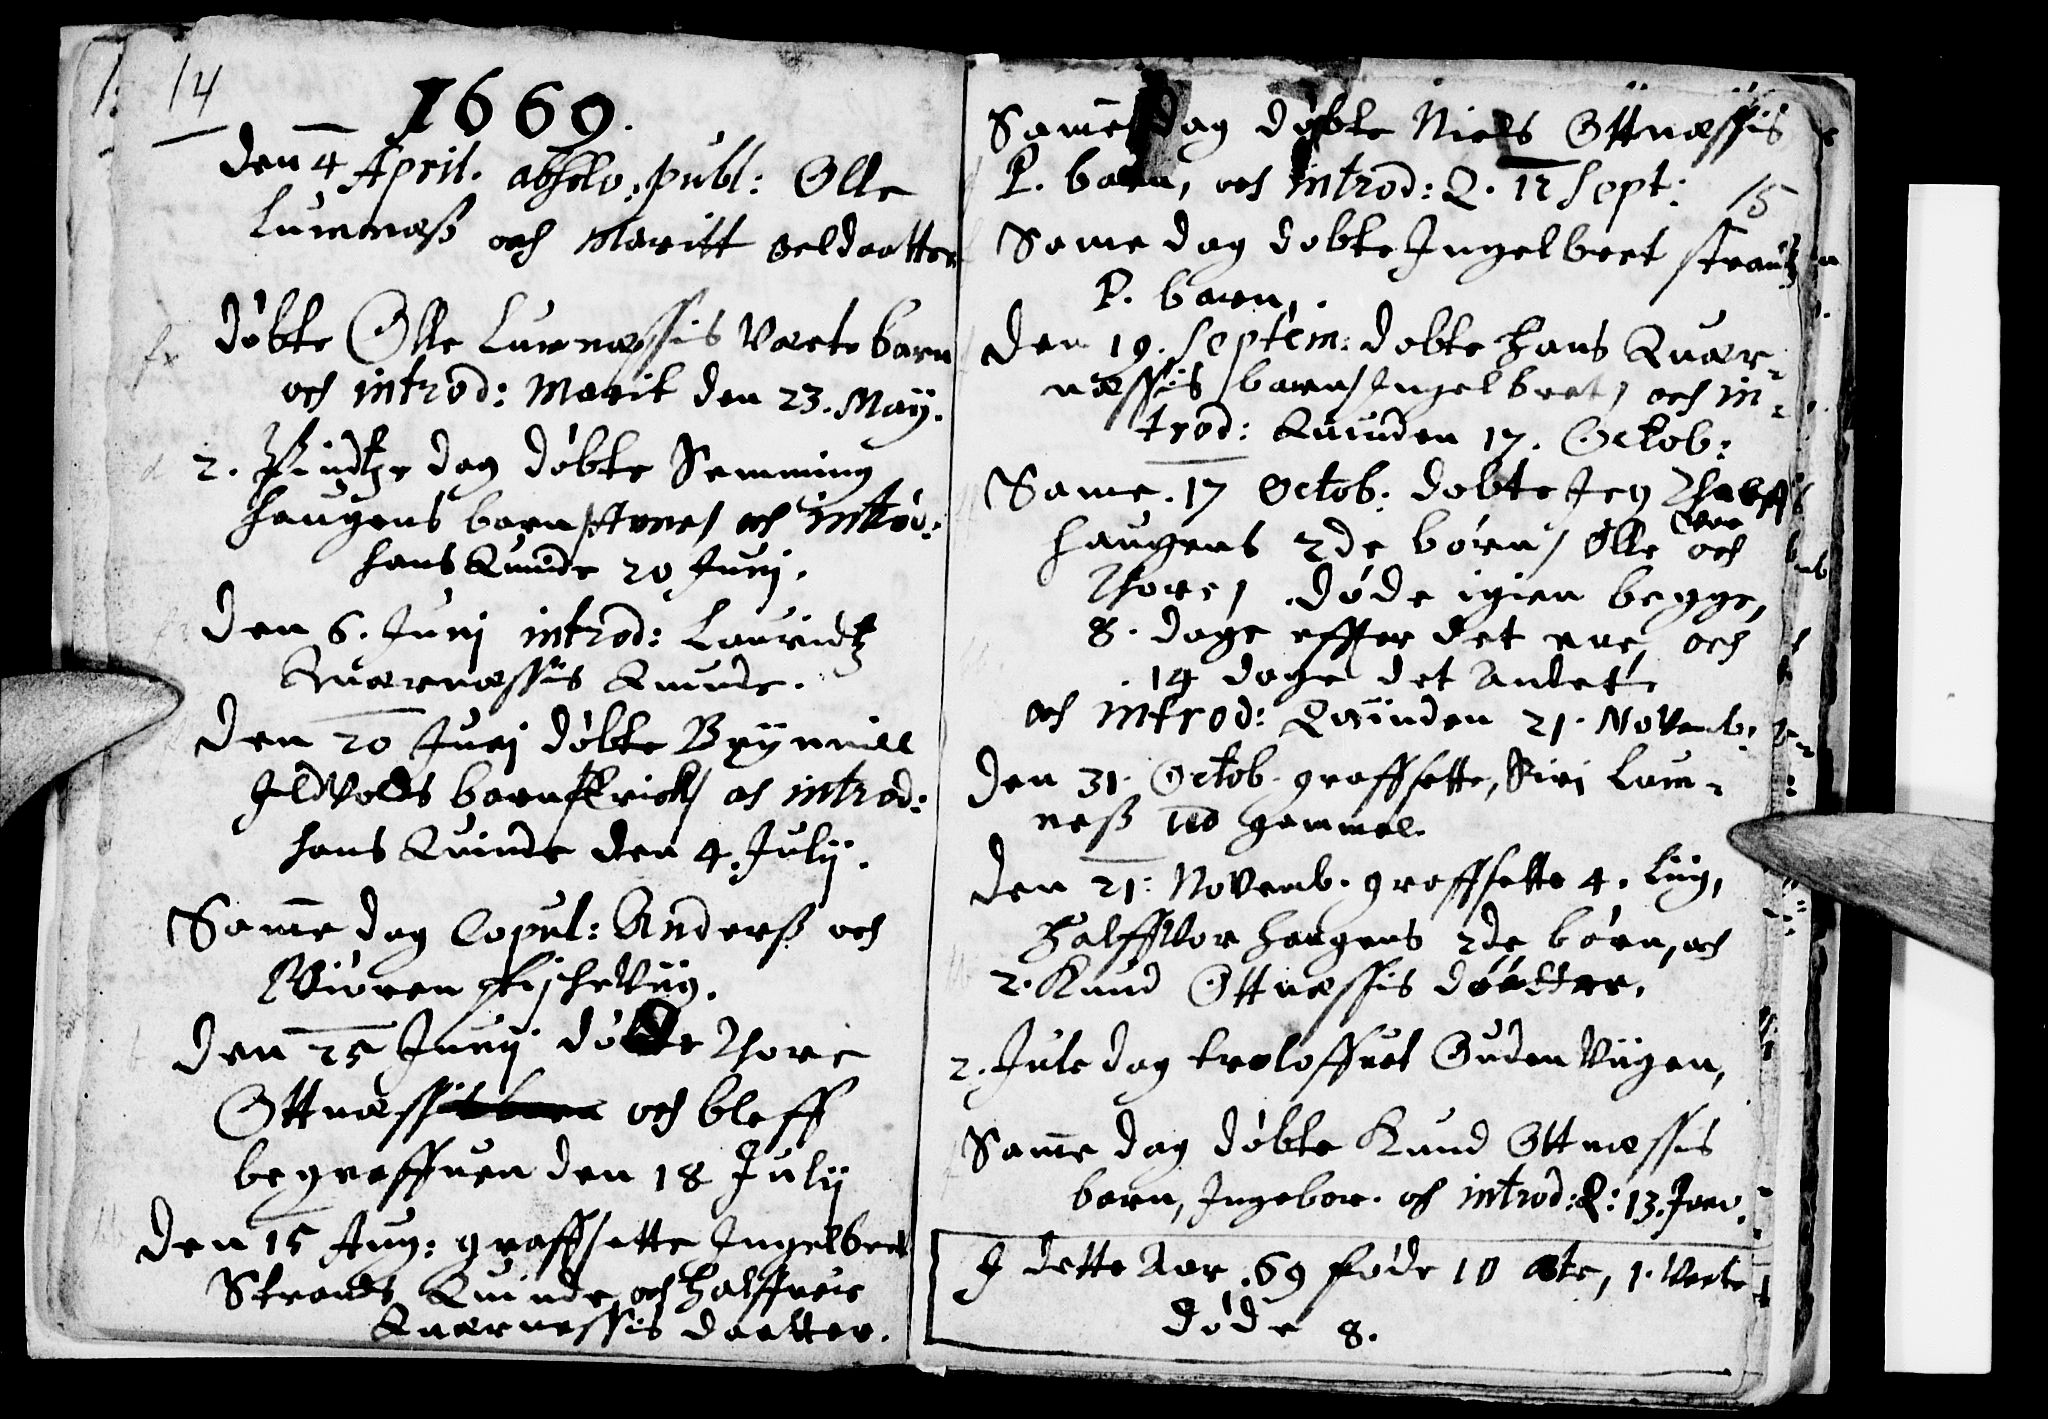 14
1669.
den 4 April. absolv: publ: Olle
Lurnæss och Maritt
døbte Olle Lurnæssis Uæcte barn
och introd: Marit den 23. Maÿ.
2. Pindtze dag døbte Semming
haugens barn, och introd:
hans Quinde 20 Junj.
Den 6. Junj introd: Lauridtz
Quærnæssis Quinde.
Den 20 Junj døbte Brÿnnill
Ildvolds barn /Erick/ och introd:
hans Quinde den 4. Julij.
Samme dag Copul: Anderss och
Giøren
den 25 Junij døbte Thore
Ottnæssis barn och bleff
begraffuen den 18 Julij
Den 15 Aug: graffsette Ingelbret
Strands Quinde, och Halffuer
Quærnessis daatter.
Samme dag døbte Niels Ottnæssis
P. barn, och introd: Q. 12 Sept:
15
Same dag døbte Ingelbret Strandtz
P. barn,
Den 19. Septem: døbte Hans Quær-
næssis barn /Ingelbret/ och in-
trod: Quinden 17. Octob:
Same 17 Octob: døbte Jeg
haugens 2de børn / Olle och
Thore / døde igien begge,
8. dage effter det ene och
14 dage det andet
och introd: Quinden 21. Novemb:
Den 31. Octob. graffsette, Siri Laur-
ness 110 gammel.
Den 21. Novemb. graffsette 4. Liig,
Halffuor haugens 2de børn, och
2. Knud Ottnæssis døøttre.
2. Jule dag troloffuet Guden Viigen,
Samme dag døbte Knud Ottnæssis
barn, Ingebor. och introd: Q: 13. Janv.
I dette Aar 69 føde 10 æcte, 1. Uecte
døde 8.